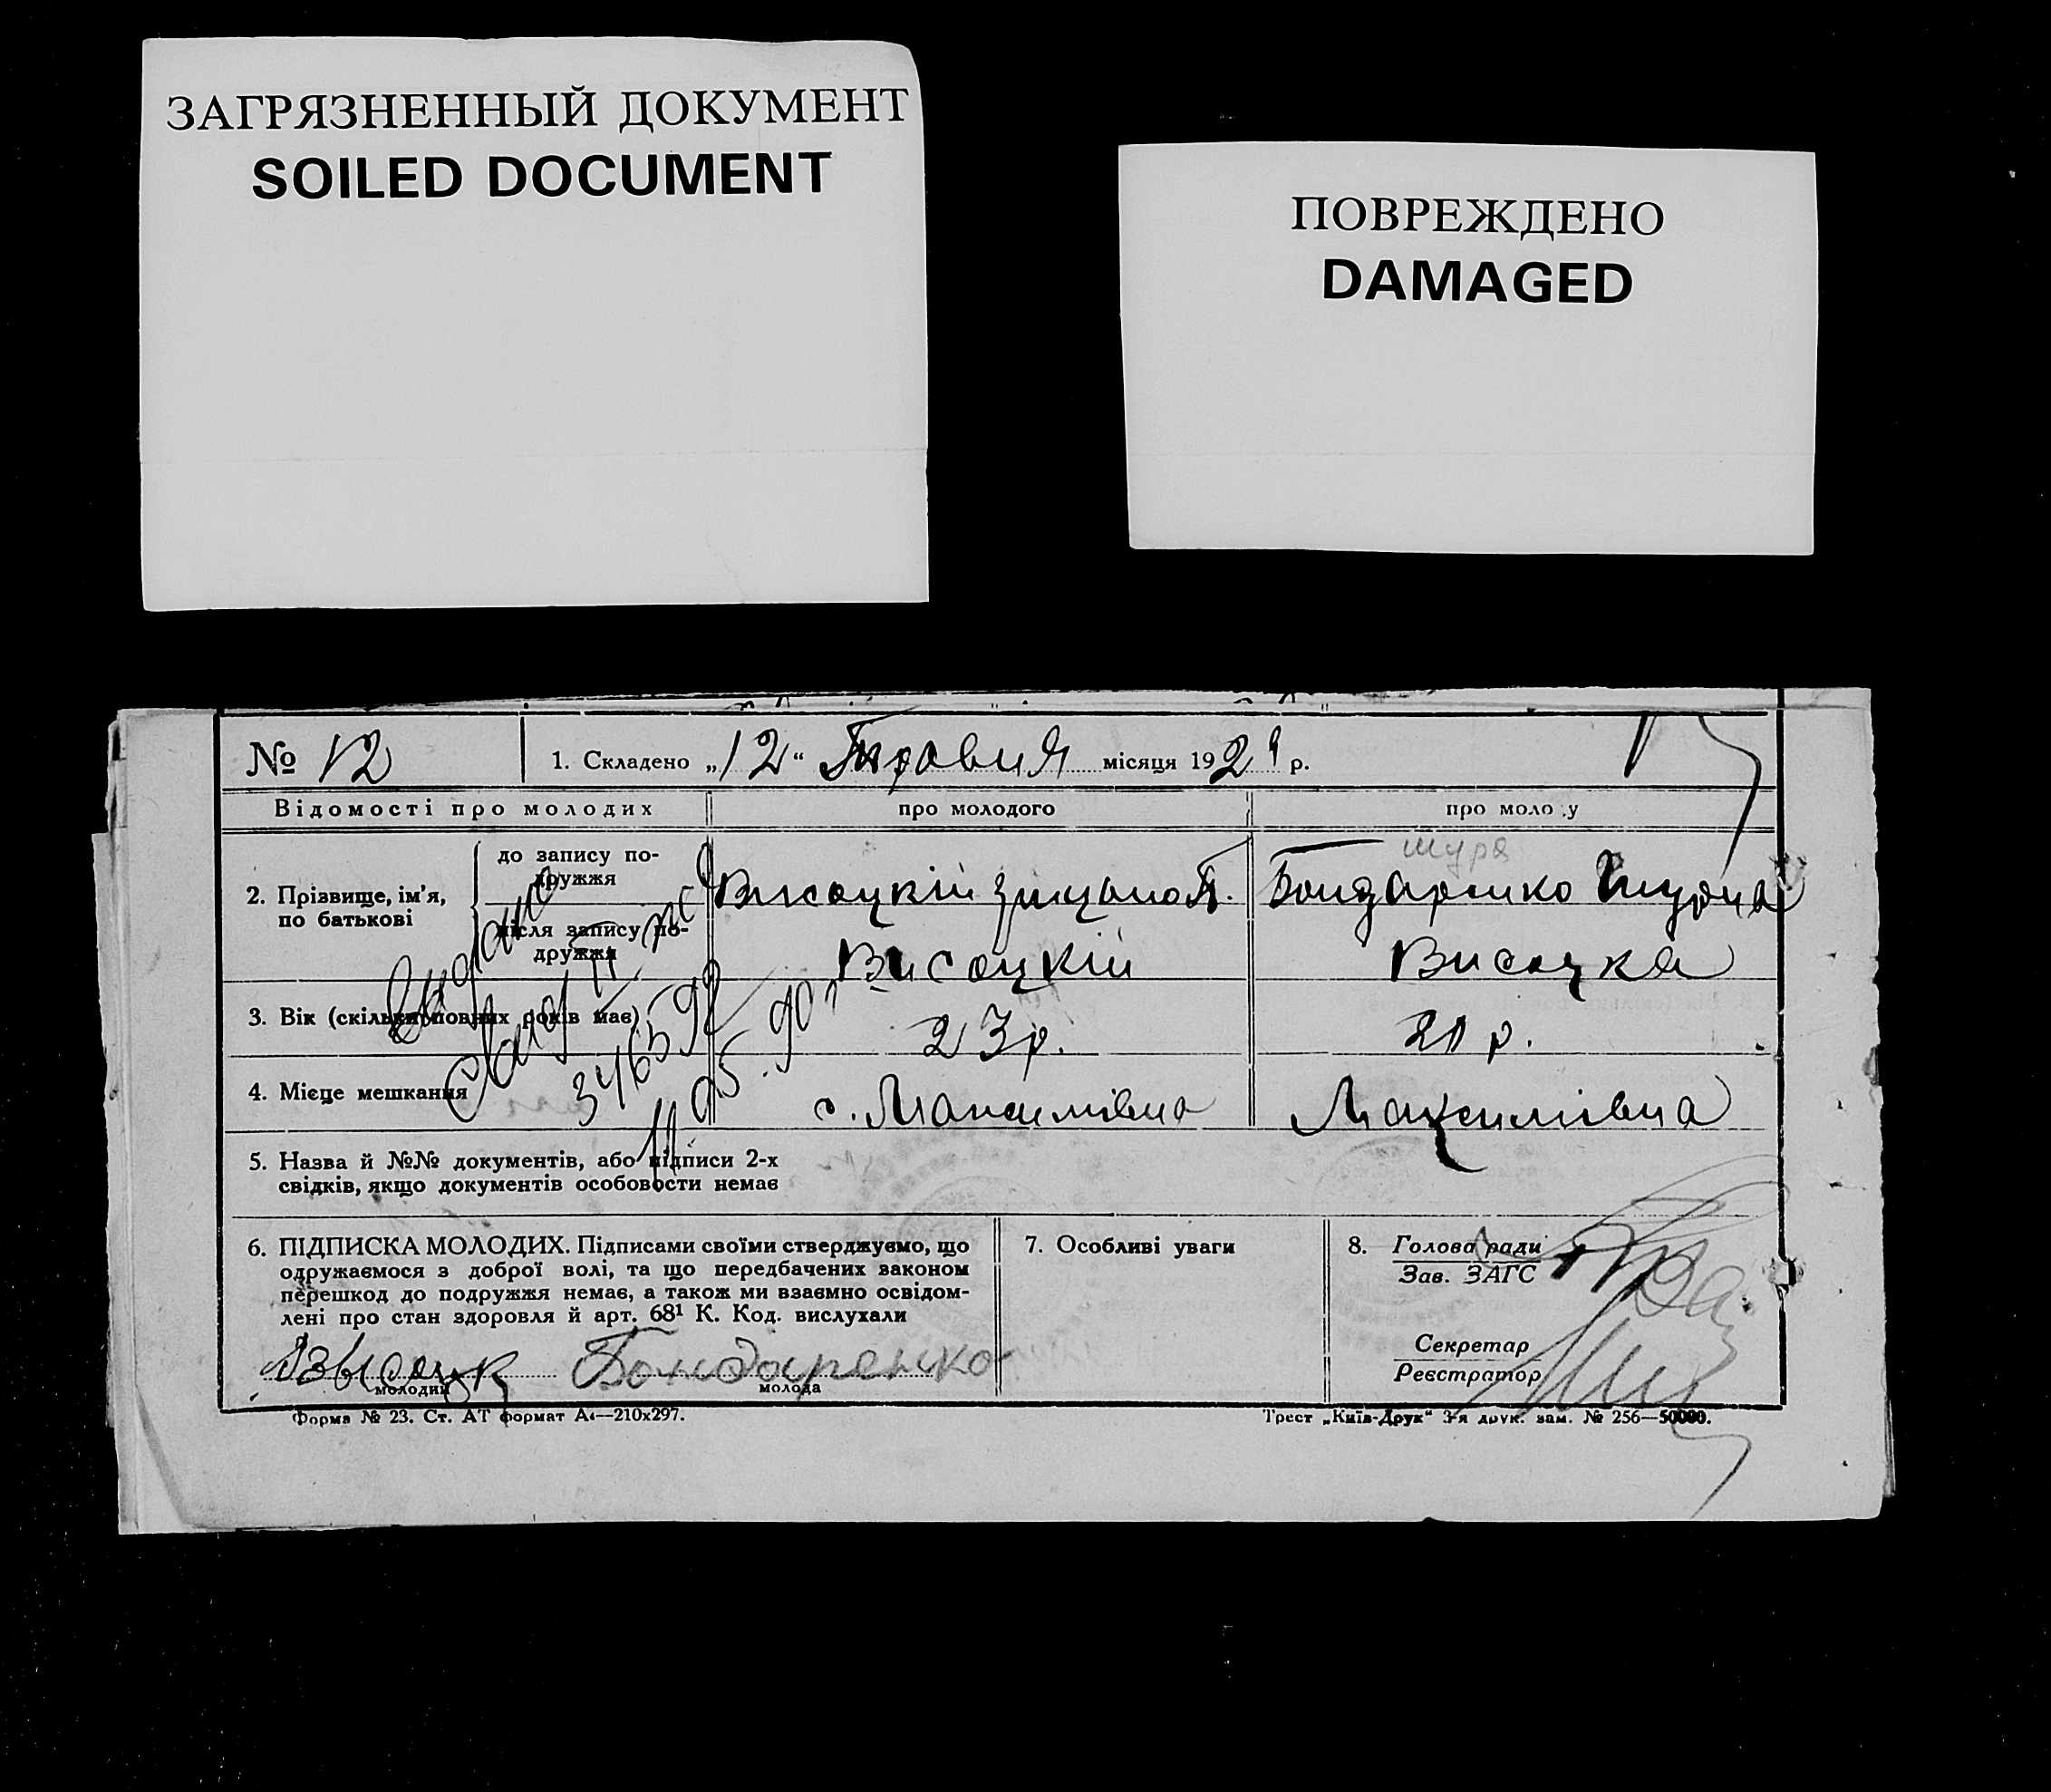 ЗАГРЯЗНЕННЫЙ ДОКУМЕНТ
SOILED DOCUMENT
ПОВРЕЖДЕНО
DAMAGED
№ 12
1. Складено „12“ Травня місяця 1929 р.
Відомості про молодих
про молодого
про моло у
2. Прізвище, ім'я, по батькові
до запису по-
дружжя
Висоцкій
шуря
Бондаренко
після запису по-
дружжя
Висоцкій
Висоцка
3. Вік (скільки повних років має)
23 р.
21 р.
4. Місце мешкання
с. Максимівна
Максимівна
Видано
346592
11.05.90
5. Назва й №№ документів, або підписи 2-х
свідків, якщо документів особовости немає
6. ПІДПИСКА МОЛОДИХ. Підписами своїми стверджуємо, що
одружаємося з доброї волі, та що передбачених законом
перешкод до подружжя немає, а також ми взаємно освідом-
лені про стан здоровля й арт. 68¹ К. Код. вислухали
Бондаренко
молодий
молода
7. Особливі уваги
8. Голова ради
Зав. ЗАГС
Секретар
Реєстратор
Форма № 23. Ст. АТ формат А4—210х297.
Трест „Київ-Друк“ 3-я друк. зам. № 256—50000.